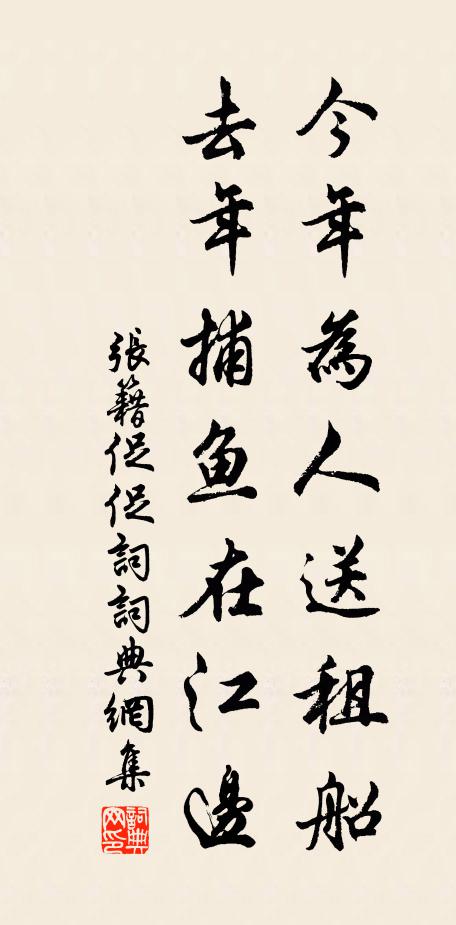 今年為人送租船
去年捕鱼在江邊
張籍促促詞詞典網集
詞典網印